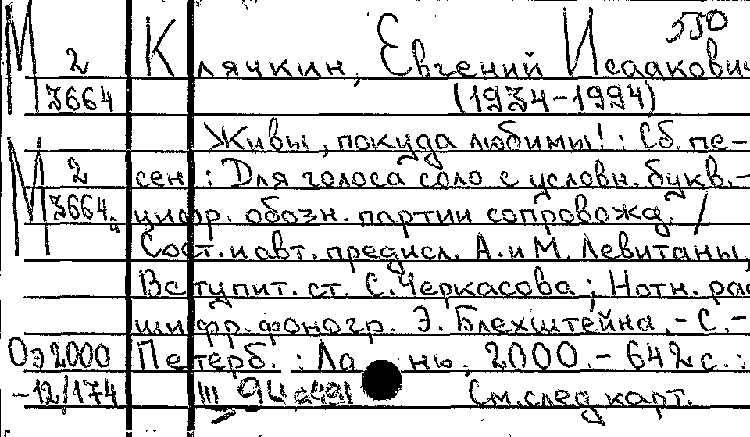 550
М 2 Клячкин, Евгений Исаакович
3664 (1934-1994)
Живы, покуда любимы! : Сб. пе-
М 2 сен : Для голоса соло с условн. букв.-
3664а цифр. обозн. партии сопровожд. /
Сост. и авт. предисл. А. и М. Левитаны,
Вступит. ст. С. Черкасова ; Нотн. рас
шифр. фоногр. Э. Блехштейна. - С.-
Оэ2000 Петерб. : Ла нь, 2000. - 642 с. :
-12/174 См. след карт.